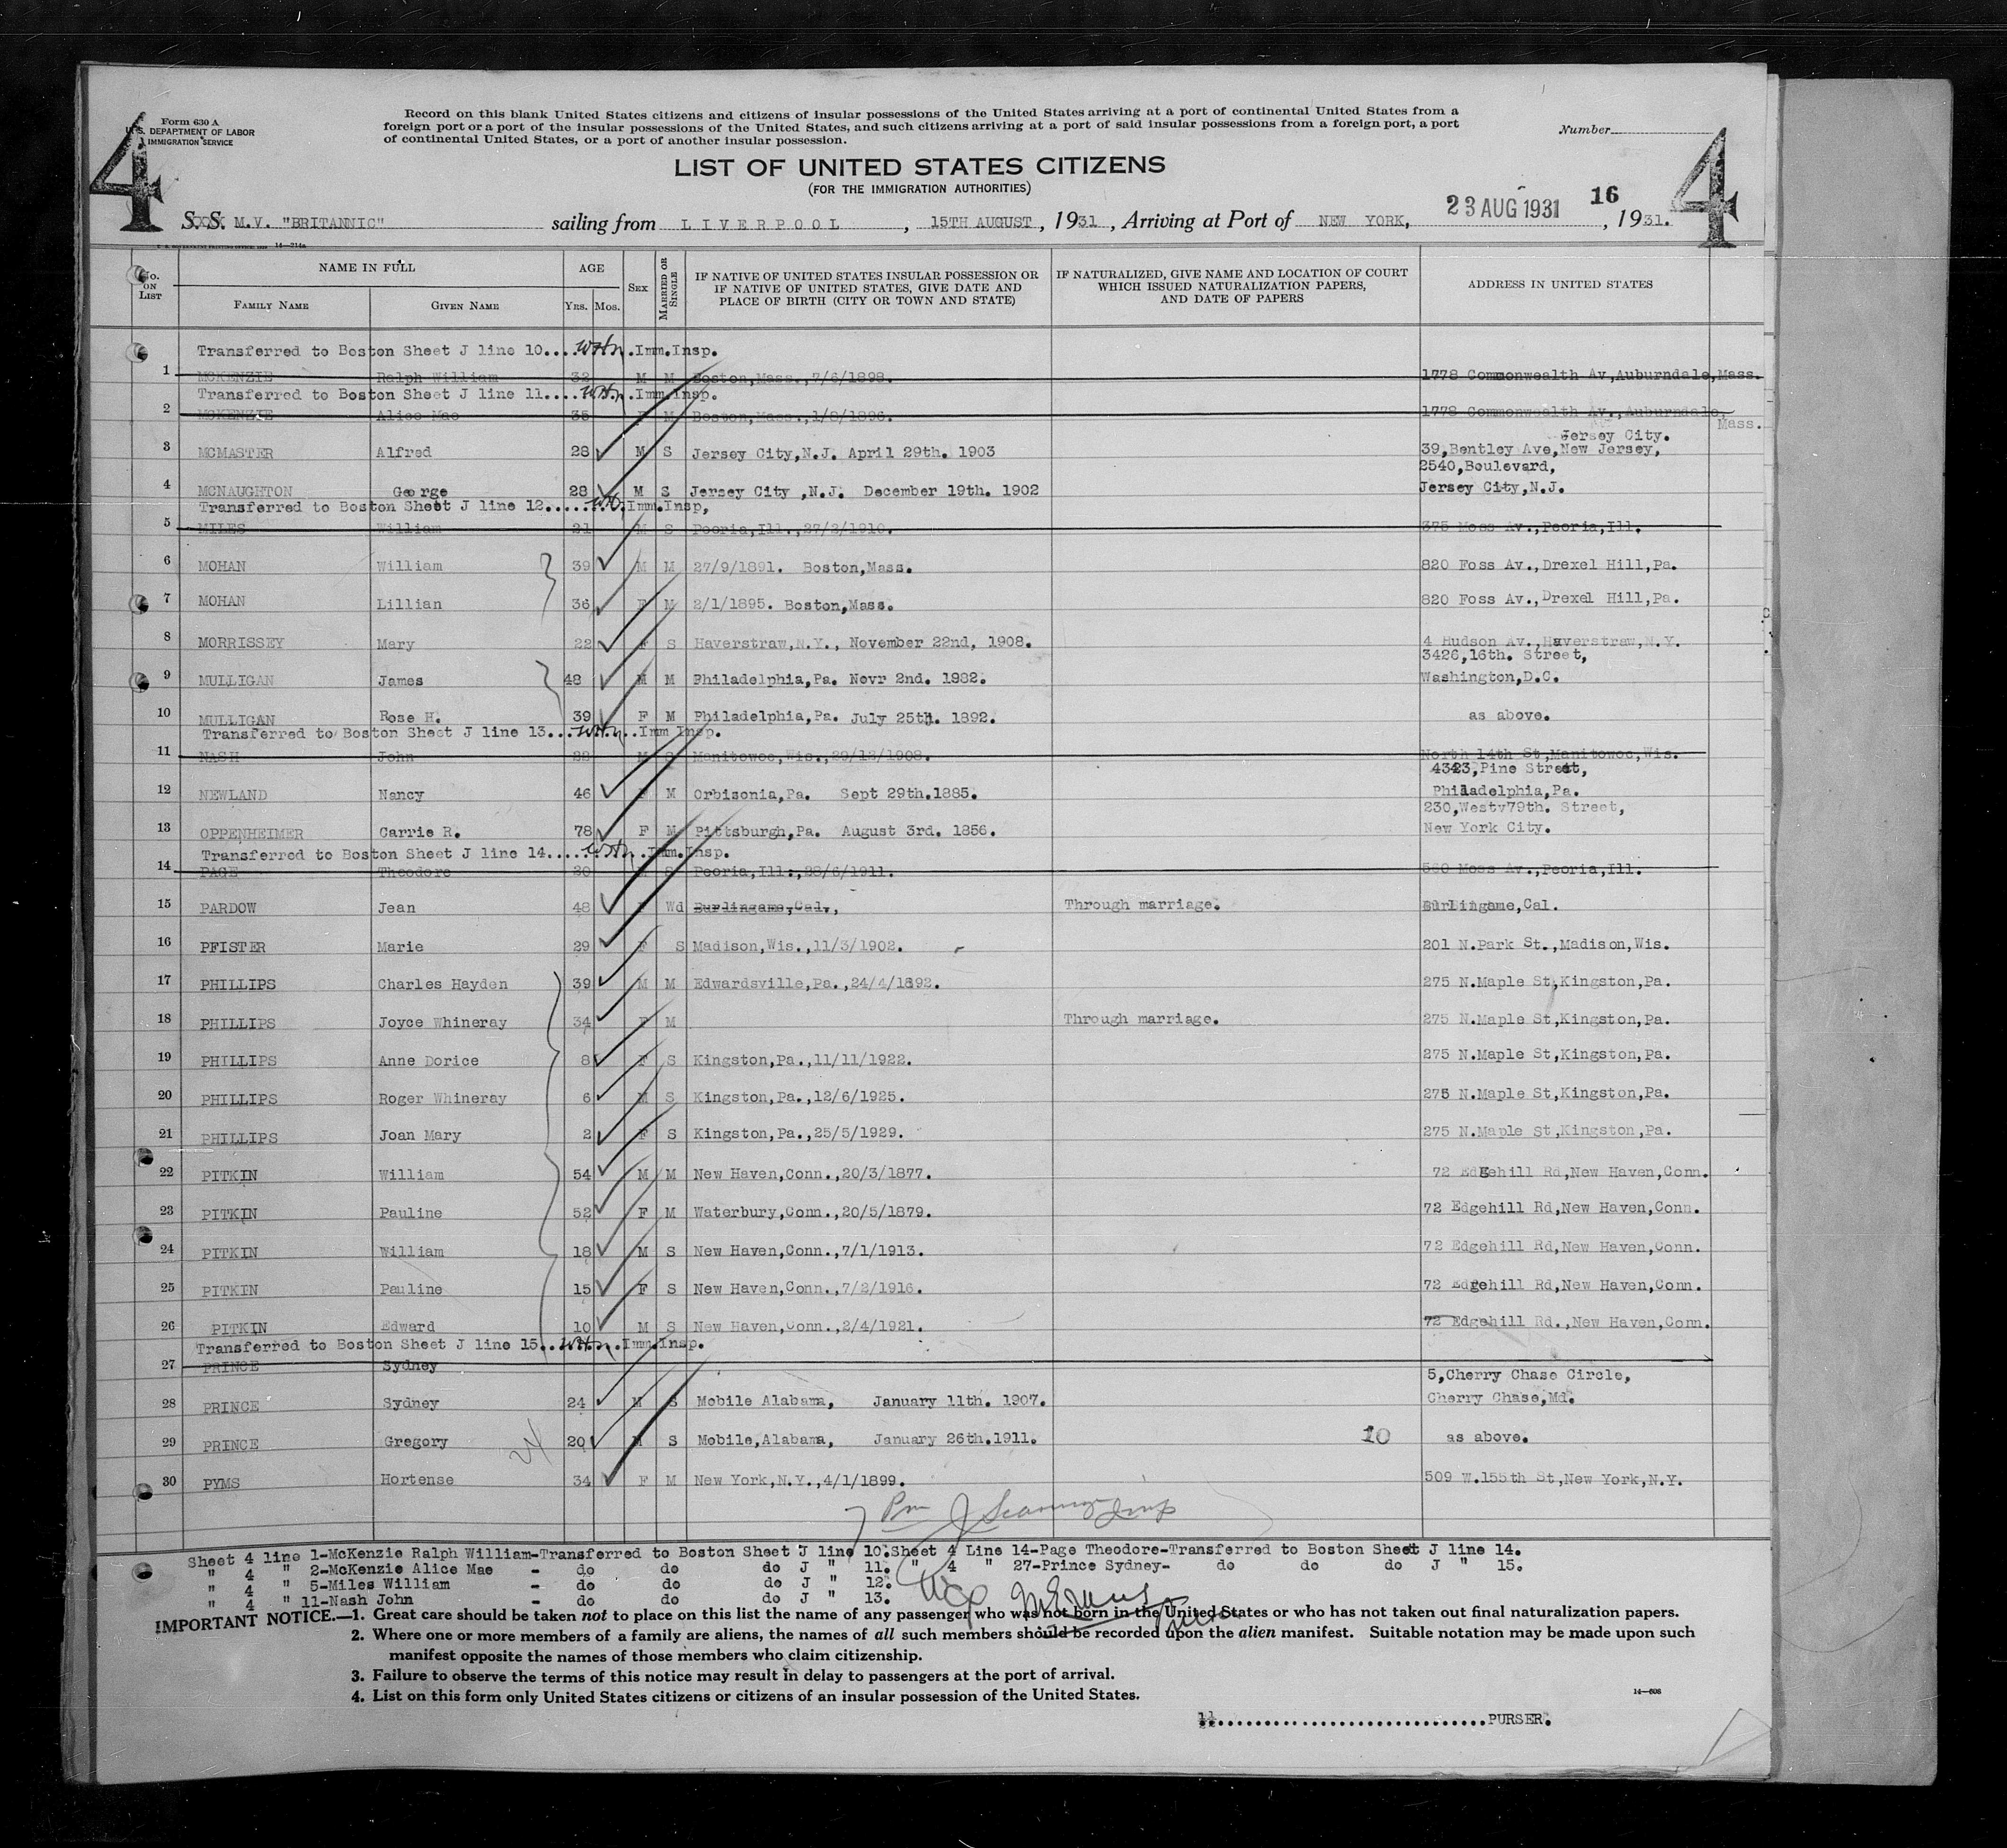 Form 630 A
U. S. DEPARTMENT OF LABOR
IMMIGRATION SERVICE
4
Record on this blank United States citizens and citizens of insular possessions of the United States arriving at a port of continental United States from a
foreign port or a port of the insular possessions of the United States, and such citizens arriving at a port of said insular possessions from a foreign port, a port
of continental United States, or a port of another insular possession.
Number
4
LIST OF UNITED STATES CITIZENS
(FOR THE IMMIGRATION AUTHORITIES)
S. S. M.V. "BRITANNIC" sailing from LIVERPOOL, 15TH AUGUST, 1931, Arriving at Port of NEW YORK, 23 AUG 1931 16, 1931.
No. ON LIST NAME IN FULL AGE SEX MARRIED OR SINGLE IF NATIVE OF UNITED STATES INSULAR POSSESSION OR IF NATIVE OF UNITED STATES, GIVE DATE AND PLACE OF BIRTH (CITY OR TOWN AND STATE) IF NATURALIZED, GIVE NAME AND LOCATION OF COURT WHICH ISSUED NATURALIZATION PAPERS, AND DATE OF PAPERS ADDRESS IN UNITED STATES
FAMILY NAME GIVEN NAME YRS. MOS.
Transferred to Boston Sheet J line 10.... .Imm.Insp.
1 MCKENZIE Ralph William 32 M M Boston,Mass.,7/6/1898. 1778 Commonwealth Av,Auburndale,Mass.
Transferred to Boston Sheet J line 11.... .Imm.Insp.
2 MCKENZIE Alice Mae 35 F M Boston,Mass.,1/8/1896. 1778 Commonwealth Av.,Auburndale, Mass.
Jersey City.
3 MCMASTER Alfred 28 M S Jersey City,N.J. April 29th. 1903 39,Bentley Ave,New Jersey,
2540,Boulevard,
4 MCNAUGHTON George 28 M S Jersey City ,N.J. December 19th. 1902 Jersey City,N.J.
Transferred to Boston Sheet J line 12...... .Imm.Insp,
5 MILES William 21 M S Peoria,Ill.,27/2/1910. 375 Moss Av.,Peoria,Ill.
6 MOHAN William 39 M M 27/9/1891. Boston,Mass. 820 Foss Av.,Drexel Hill,Pa.
7 MOHAN Lillian 36 F M 2/1/1895. Boston,Mass. 820 Foss Av.,Drexel Hill,Pa.
8 MORRISSEY Mary 22 F S Haverstraw,N.Y., November 22nd, 1908. 4 Hudson Av.,Haverstraw,N.Y.
3426,16th. Street,
9 MULLIGAN James 48 M M Philadelphia,Pa. Novr 2nd. 1982. Washington,D.C.
10 MULLIGAN Rose H. 39 F M Philadelphia,Pa. July 25th. 1892. as above.
Transferred to Boston Sheet J line 13... ..Imm Insp.
11 NASH John 22 M S Manitowoc,Wis.,29/12/1908. North 14th St,Manitowoc,Wis.
4323,Pine Street,
12 NEWLAND Nancy 46 F M Orbisonia,Pa. Sept 29th.1885. Philadelphia,Pa.
230,Westv79th. Street,
13 OPPENHEIMER Carrie R. 78 F M Pittsburgh,Pa. August 3rd. 1856. New York City.
Transferred to Boston Sheet J line 14.... .Imm.Insp.
14 PAGE Theodore 20 M S Peoria,Ill.,28/6/1911. 560 Moss Av.,Peoria,Ill.
15 PARDOW Jean 48 F Wd Burlingame,Cal., Through marriage. Burlingame,Cal.
16 PFISTER Marie 29 F S Madison,Wis.,11/3/1902. 201 N.Park St.,Madison,Wis.
17 PHILLIPS Charles Hayden 39 M M Edwardsville,Pa.,24/4/1892. 275 N.Maple St,Kingston,Pa.
18 PHILLIPS Joyce Whineray 34 F M Through marriage. 275 N.Maple St,Kingston,Pa.
19 PHILLIPS Anne Dorice 8 F S Kingston,Pa.,11/11/1922. 275 N.Maple St,Kingston,Pa.
20 PHILLIPS Roger Whineray 6 M S Kingston,Pa.,12/6/1925. 275 N.Maple St,Kingston,Pa.
21 PHILLIPS Joan Mary 2 F S Kingston,Pa.,25/5/1929. 275 N.Maple St,Kingston,Pa.
22 PITKIN William 54 M M New Haven,Conn.,20/3/1877. 72 Edgehill Rd,New Haven,Conn.
23 PITKIN Pauline 52 F M Waterbury,Conn.,20/5/1879. 72 Edgehill Rd,New Haven,Conn.
24 PITKIN William 18 M S New Haven,Conn.,7/1/1913. 72 Edgehill Rd,New Haven,Conn.
25 PITKIN Pauline 15 F S New Haven,Conn.,7/2/1916. 72 Edgehill Rd,New Haven,Conn.
26 PITKIN Edward 10 M S New Haven,Conn.,2/4/1921. 72 Edgehill Rd.,New Haven,Conn.
Transferred to Boston Sheet J line 15.. .Imm.Insp.
27 PRINCE Sydney
5,Cherry Chase Circle,
28 PRINCE Sydney 24 M S Mobile Alabama, January 11th. 1907. Cherry Chase,Md.
29 PRINCE Gregory 20 M S Mobile,Alabama, January 26th.1911. 10 as above.
24
30 PYMS Hortense 34 F M New York,N.Y.,4/1/1899. 509 W.155th St,New York,N.Y.
Sheet 4 line 1-McKenzie Ralph William-Transferred to Boston Sheet J line 10. Sheet 4 Line 14-Page Theodore-Transferred to Boston Sheet J line 14.
" 4 " 2-McKenzie Alice Mae - do do do J " 11. " 4 " 27-Prince Sydney- do do do J " 15.
" 4 " 5-Miles William - do do do J " 12.
" 4 " 11-Nash John - do do do J " 13.
IMPORTANT NOTICE.—1. Great care should be taken not to place on this list the name of any passenger who was not born in the United States or who has not taken out final naturalization papers.
2. Where one or more members of a family are aliens, the names of all such members should be recorded upon the alien manifest. Suitable notation may be made upon such
manifest opposite the names of those members who claim citizenship.
3. Failure to observe the terms of this notice may result in delay to passengers at the port of arrival.
4. List on this form only United States citizens or citizens of an insular possession of the United States.
14—608
..............................PURSER.